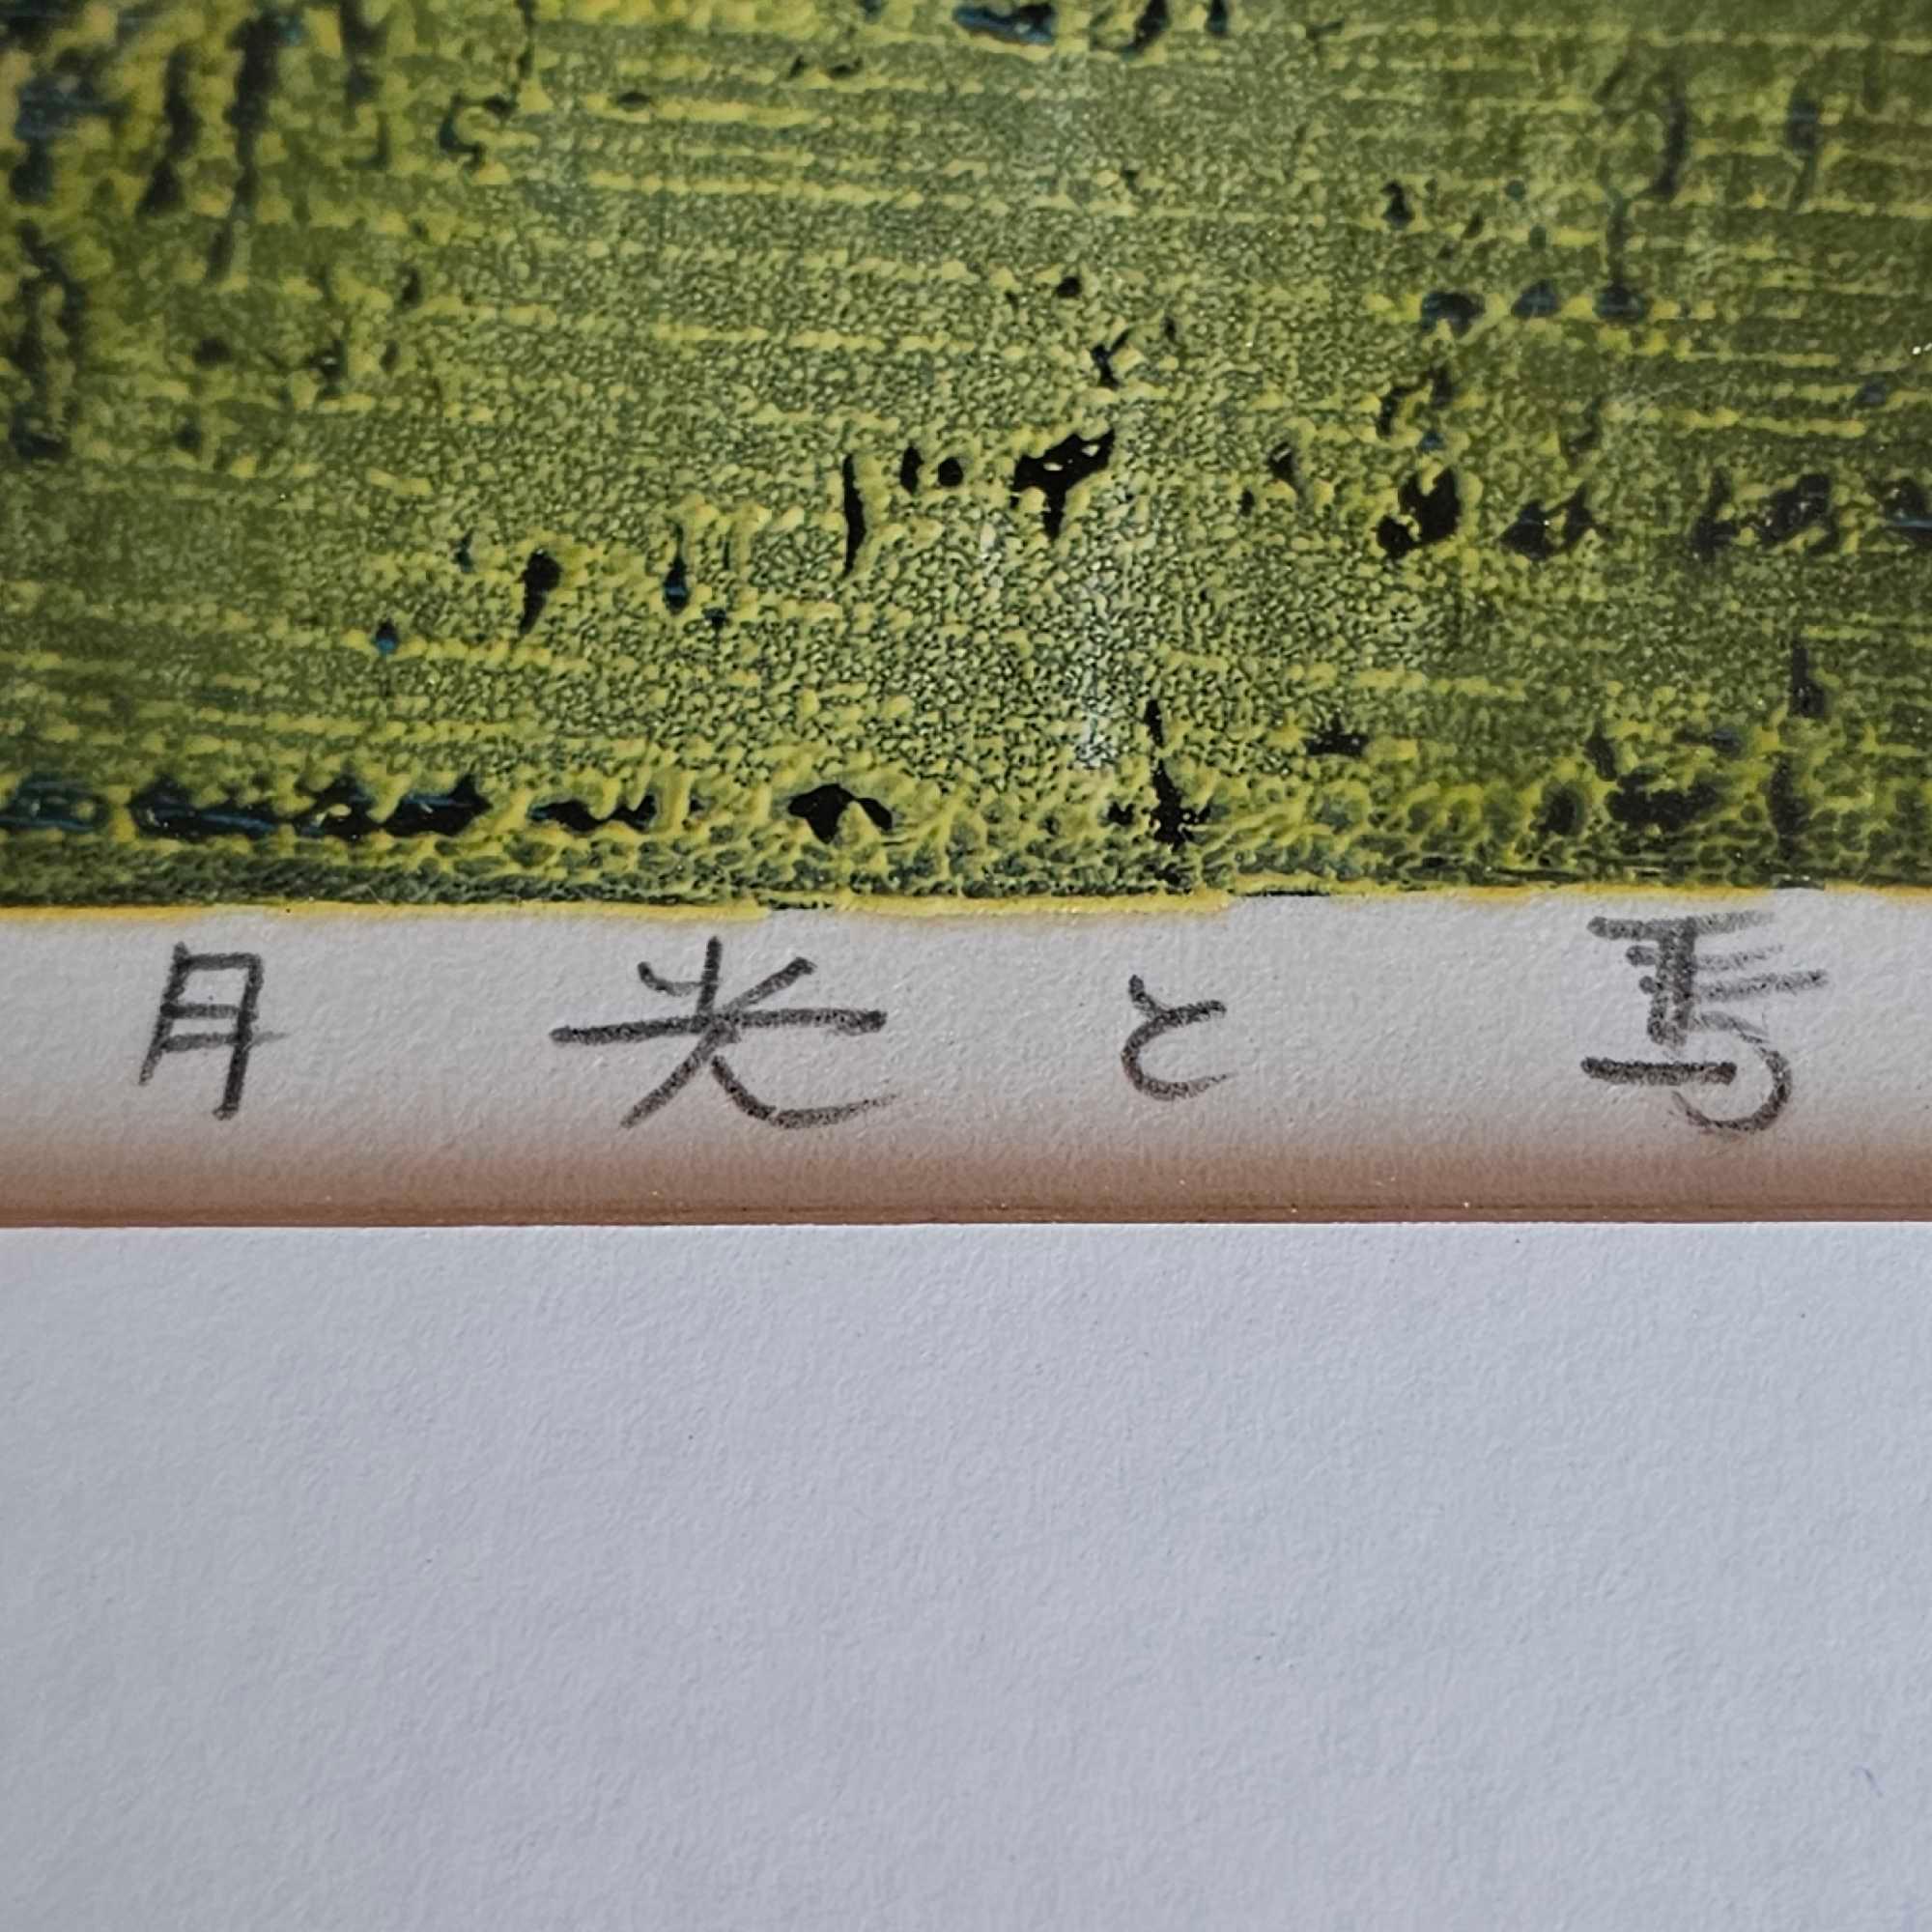 月光と馬